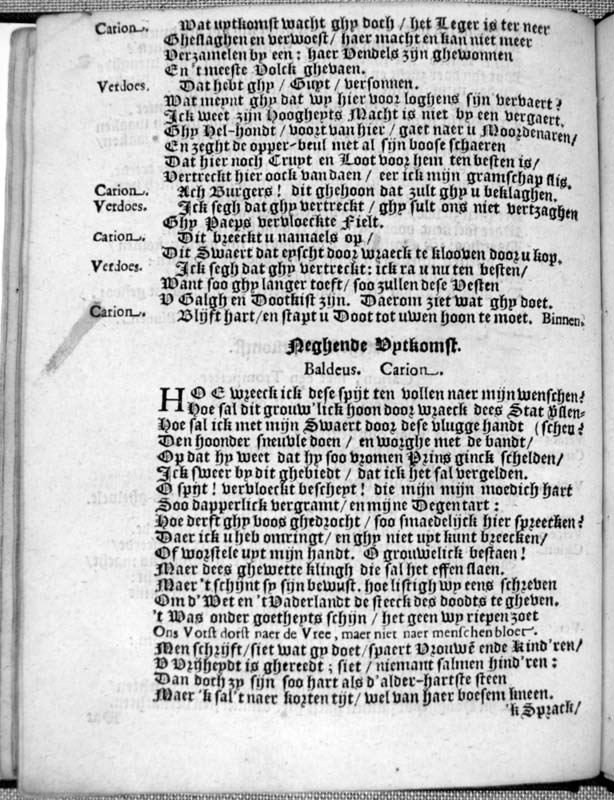 Carion. Wat uytkomst wacht ghy doch / het Leger is ter neer
Gheslaghen en verwoest / haer macht en kan niet meer
Verzamelen by een: haer Vendels zijn ghewonnen
En 't meeste Volck ghevaen.
Verdoes. Dat hebt ghy / Guyt / versonnen.
Wat meynt ghy dat wy hier voor loghens sijn vervaert?
Ick weet zijn Hoogheyts Macht is niet by een vergaert.
Ghy Hel-hondt / voort van hier / gaet naer u Moordenaren /
En zeght de opper-beul met al sijn boose schaeren
Dat hier noch Cruyt en Loot voor hem ten besten is /
Vertreckt hier oock van daen / eer ick mijn gramschap slis.
Carion. Ach Burgers! dit ghehoon dat zult ghy u beklaghen.
Verdoes. Ick segh dat ghy vertreckt / ghy sult ons niet vertzaghen
Ghy Paeps vervloeckte Fielt.
Carion. Dit breeckt u namaels op /
Dit Swaert dat eyscht door wraeck te klooven door u kop.
Verdoes. Ick segh dat ghy vertreckt: ick ra u nu ten besten /
Want soo ghy langer toeft / soo zullen dese Vesten
V Galgh en Dootkist zijn. Daerom ziet wat ghy doet.
Carion. Blijft hart / en stapt u Doot tot uwen hoon te moet. Binnen.
Neghende Vytkomst.
Baldeus. Carion.
HOE wreeck ick dese spijt ten vollen naer mijn wenschen?
Hoe sal dit grouw'lick hoon door wraeck dees Stat pslen-
Hoe sal ick met mijn Swaert door dese vlugge handt (schen?
Den hoonder sneuvle doen / en worghe met de bandt /
Op dat hy weet dat hy soo vromen Prins ginck schelden /
Ick sweer by dit ghebiedt / dat ick het sal vergelden.
O spijt! vervloeckt bescheyt! die mijn mijn moedich hart
Soo dapperlick vergramt / en mijne Degen tart:
Hoe derst ghy boos ghedrocht / soo smaedelijck hier spreecken?
Daer ick u heb omringt / en ghy niet uyt kunt breecken /
Of worstele uyt mijn handt. O grouwelick bestaen!
Maer dees ghewette klingh die sal het effen slaen.
Maer 't schijnt sy sijn bewust. hoe listigh wy eens schreven
Om d' Wet en 't Vaderlandt de steeck des doodts te gheven.
't Was onder goetheyts schijn / het geen wy riepen zoet
Ons Vorst dorst naer de Vree, maer niet naer menschen bloet.
Men schrijft / siet wat gy doet / spaert Vrouwē ende Kind'ren /
V Vrijheydt is ghereedt; siet / niemant sal men hind'ren:
Dan doch zy sijn soo hart als d'alder-hartste steen
Maer 'k sal 't naer korten tijt / wel van haer boesem kneen.
'k Sprack /